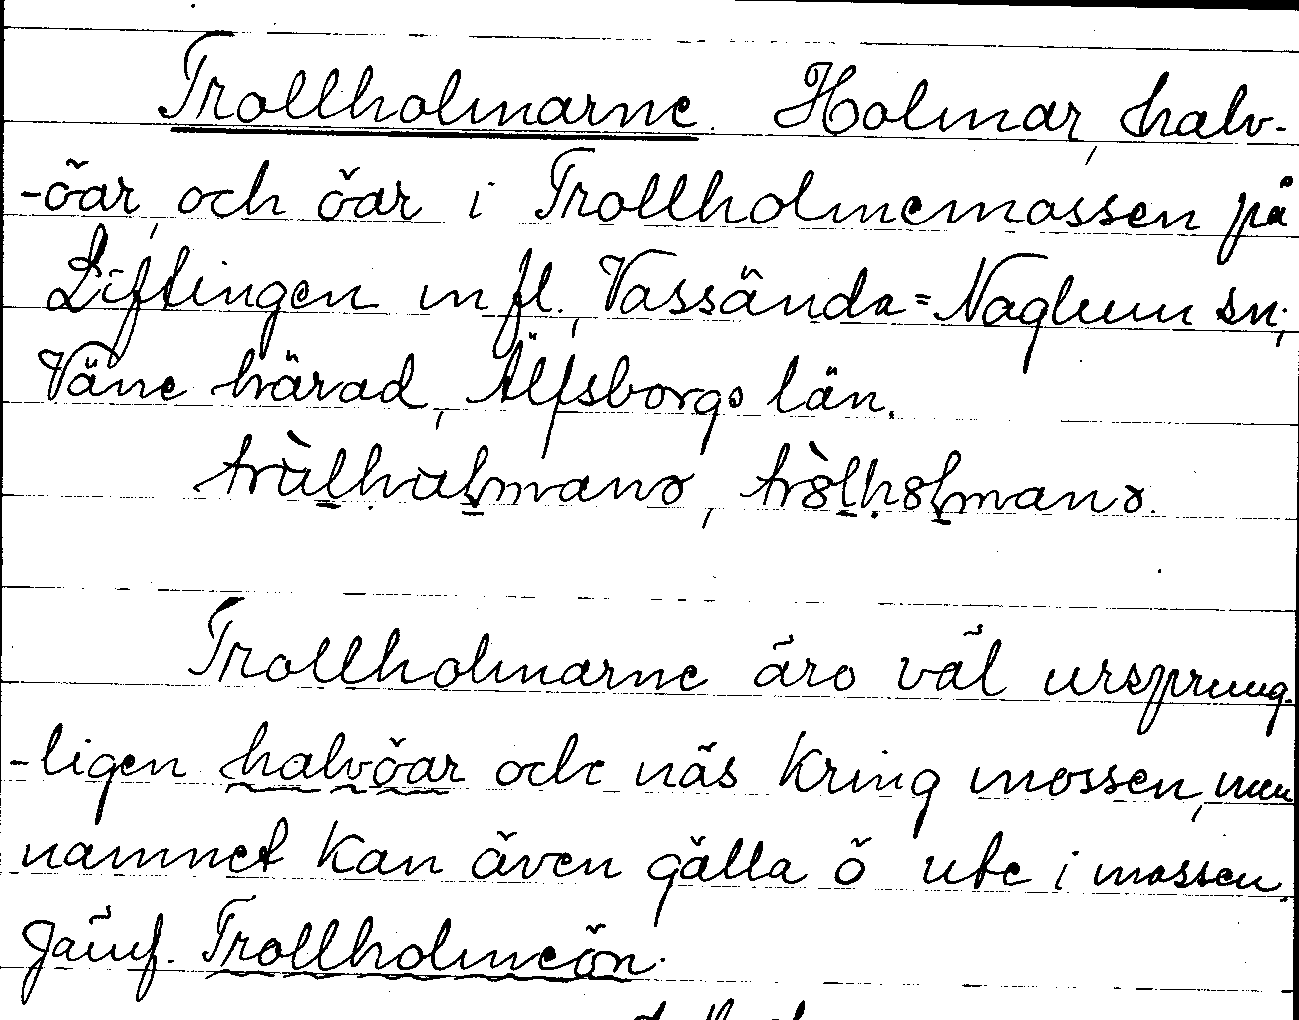 Trollholmarne. Holmar, halv-
-öar, och öar i Trollholmemossen på
Liftingen m fl., Vassända=Naglum sn;
Väne härad, Älfsborgs län.
Trollholmarne äro väl ursprung-
-ligen halvöar och näs kring mossen, men
namnet kan även gälla ö ute i mossen.
Jämf. Trollholmeön.